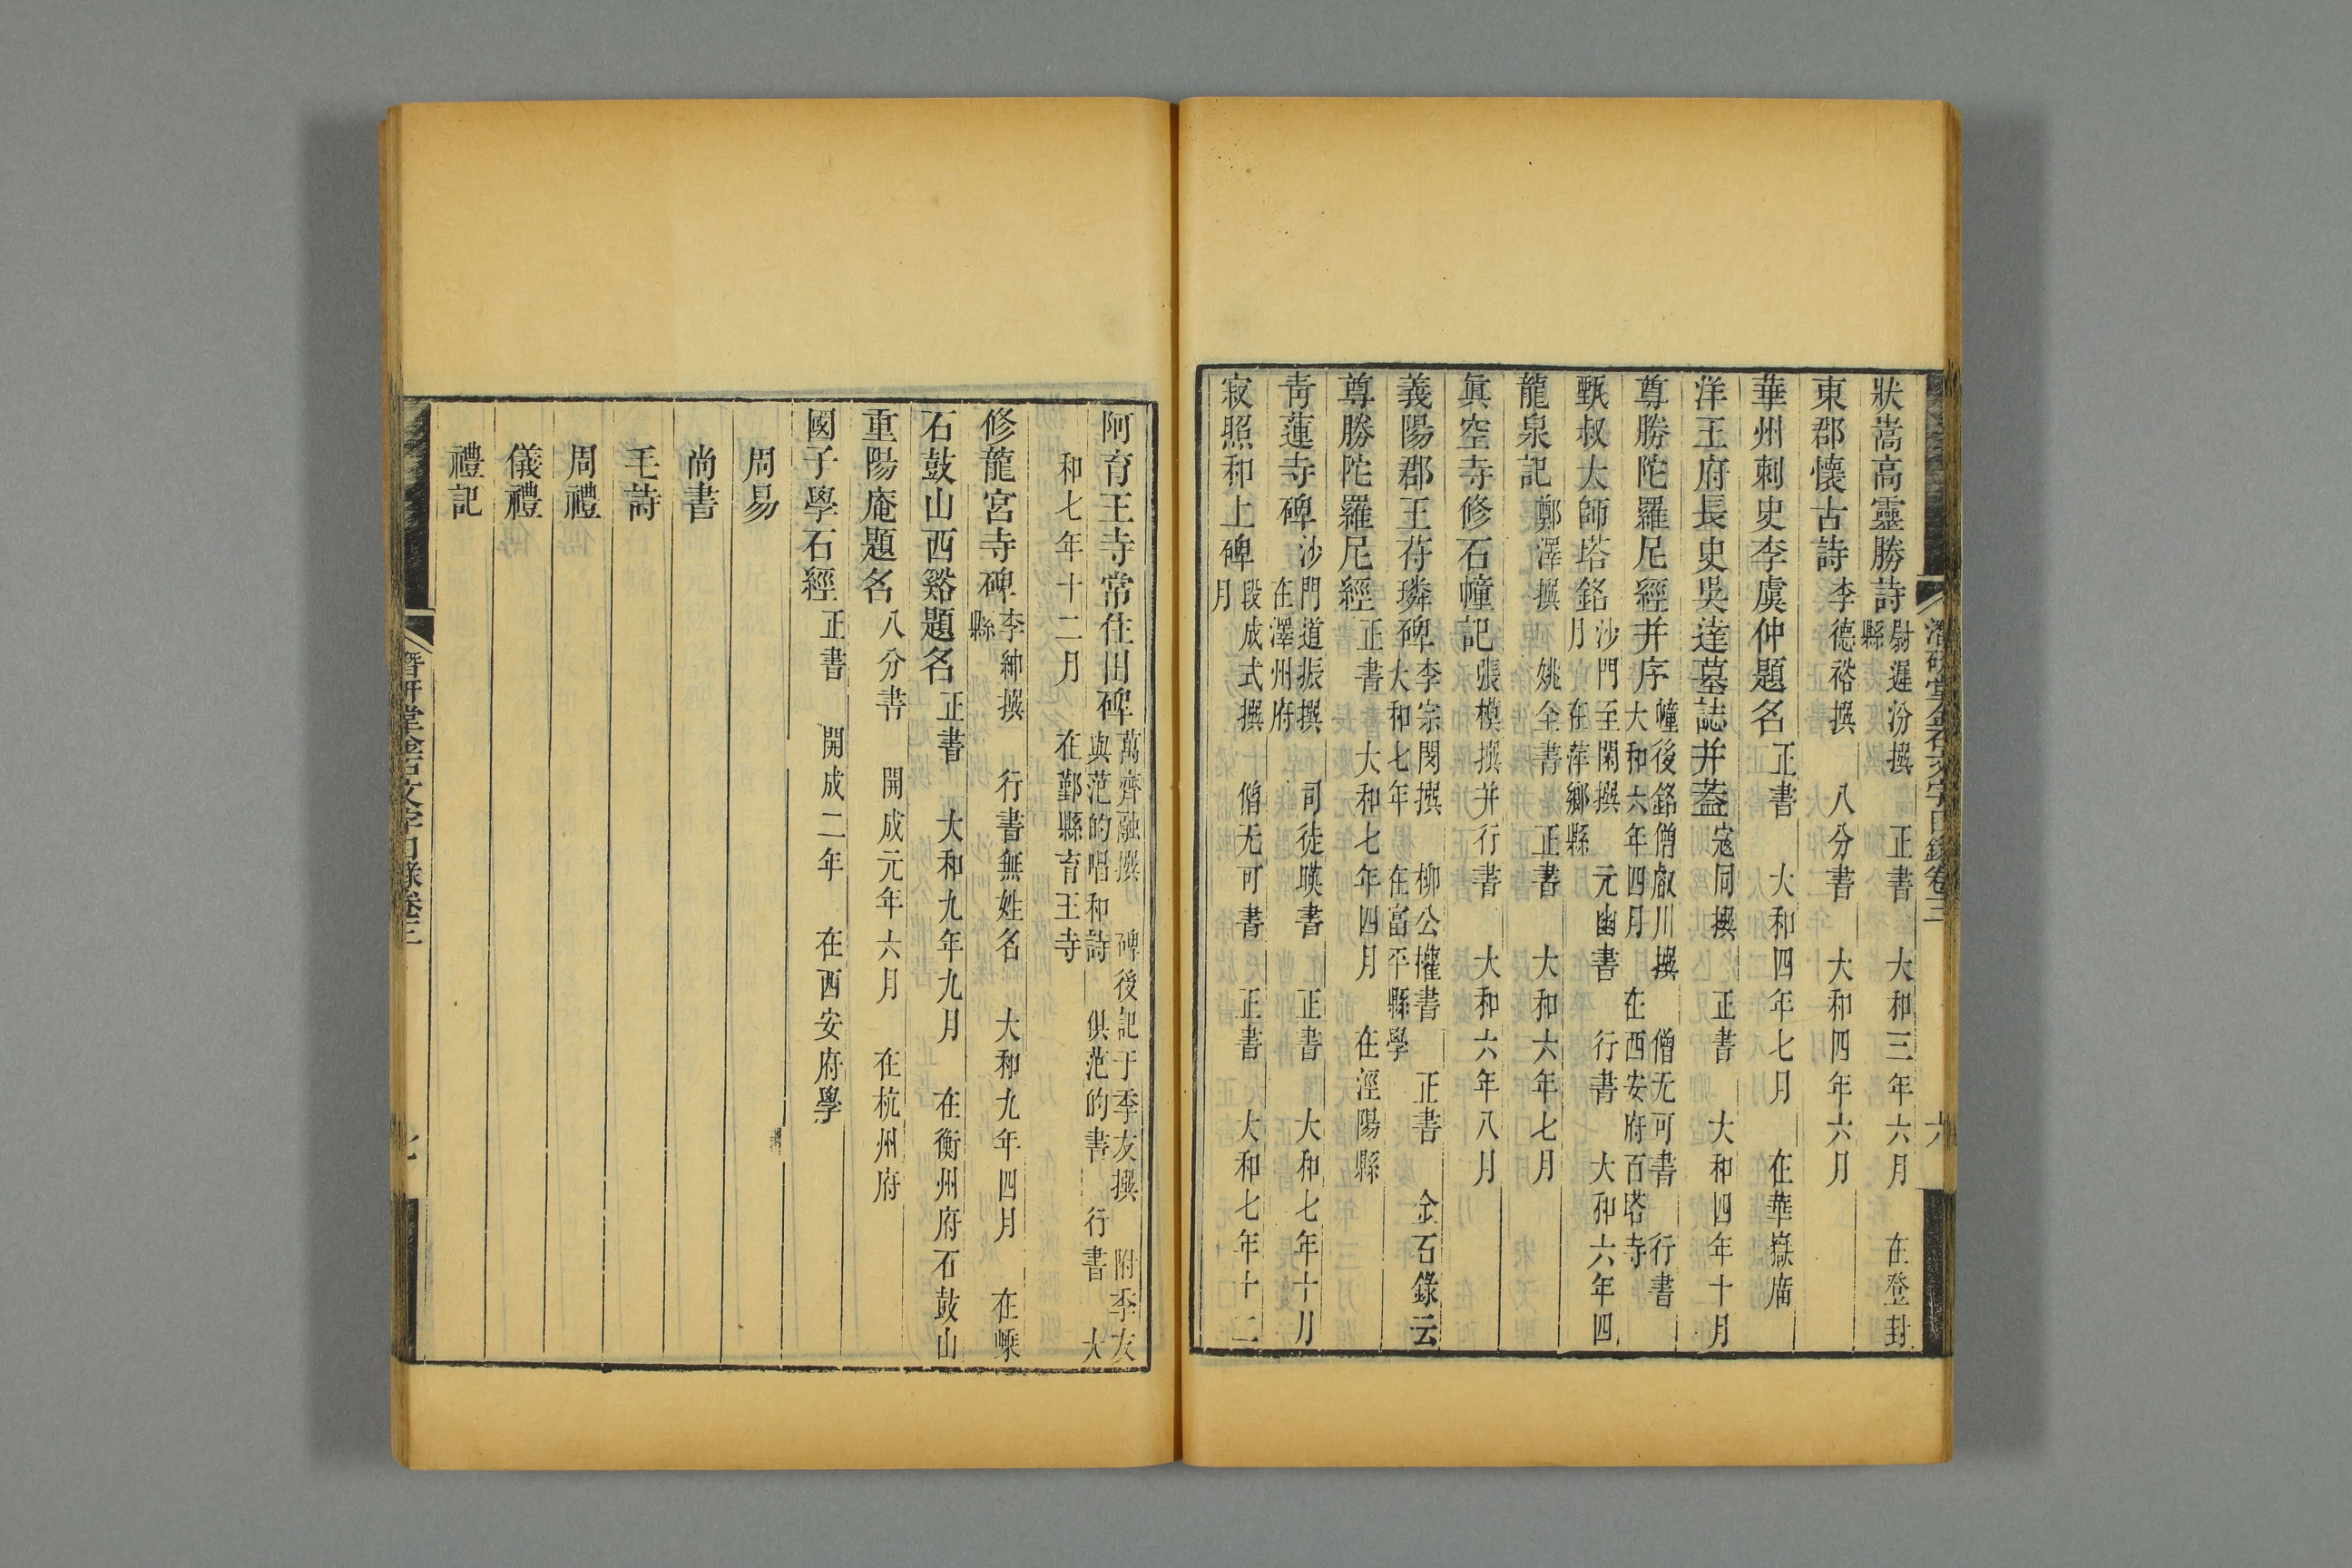 潛研堂金石文字目錄卷三
六
狀嵩高靈勝詩
尉遲汾撰 正書 大和三年六月 在登封
縣
東郡懷古詩
李德裕撰 八分書 大和四年六月
華州刺史李虞仲題名
正書 大和四年七月 在華嶽廟
洋王府長史吳達墓誌并葢
寇同撰 正書 大和四年十月
尊勝陀羅尼經并序
幢後銘僧叡川撰 僧无可書 行書
大和六年四月 在西安府百塔寺
甄叔大師塔銘
沙門至閑撰 元幽書 行書 大和六年四
月 在萍鄉縣
龍泉記
鄭澤撰 姚全書 正書 大和六年七月
眞空寺修石幢記
張模撰并行書 大和六年八月
義陽郡王苻璘碑
李宗閔撰 柳公權書 正書 金石錄云
大和七年 在富平縣學
尊勝陀羅尼經
正書 大和七年四月 在涇陽縣
青蓮寺碑
沙門道振撰 司徒映書 正書 大和七年十月
在澤州府
寂照和上碑
段成式撰 僧无可書 正書 大和七年十二
月
阿育王寺常住田碑
萬齊融撰 碑後記于季友撰 附季友
與范的唱和詩 俱范的書 行書 大
和七年十二月 在鄞縣育王寺
修龍宮寺碑
李紳撰 行書無姓名 大和九年四月 在嵊
縣
石鼓山西谿題名
正書 大和九年九月 在衡州府石鼓山
重陽庵題名
八分書 開成元年六月 在杭州府
國子學石經
正書 開成二年 在西安府學
周易
尚書
毛詩
周禮
儀禮
禮記
潛研堂金石文字目錄卷三
七